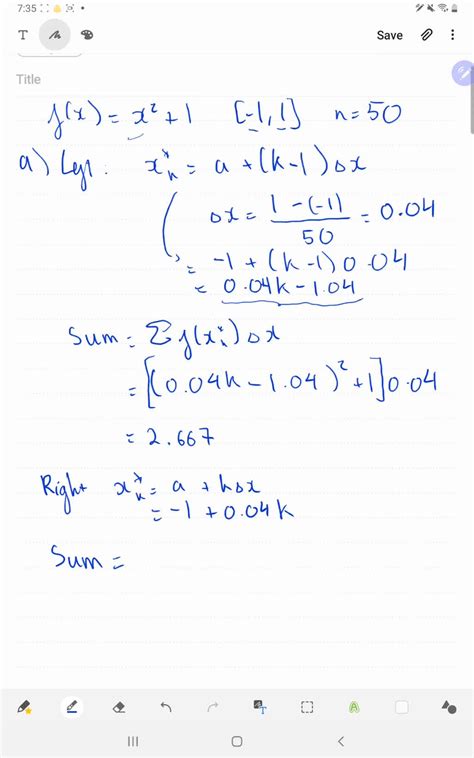 7:35
T
Save
Title
f(x) = x² + 1 [-1, 1] n = 50
a) Left: x*ₖ = a + (k-1) Δx
Δx = (1 - (-1))/50 = 0.04
= -1 + (k-1) 0.04
= 0.04k - 1.04
Sum = Σ f(x*ₖ) Δx
= [(0.04k - 1.04)² + 1] 0.04
= 2.667
Right x*ₖ = a + kΔx
= -1 + 0.04k
Sum =